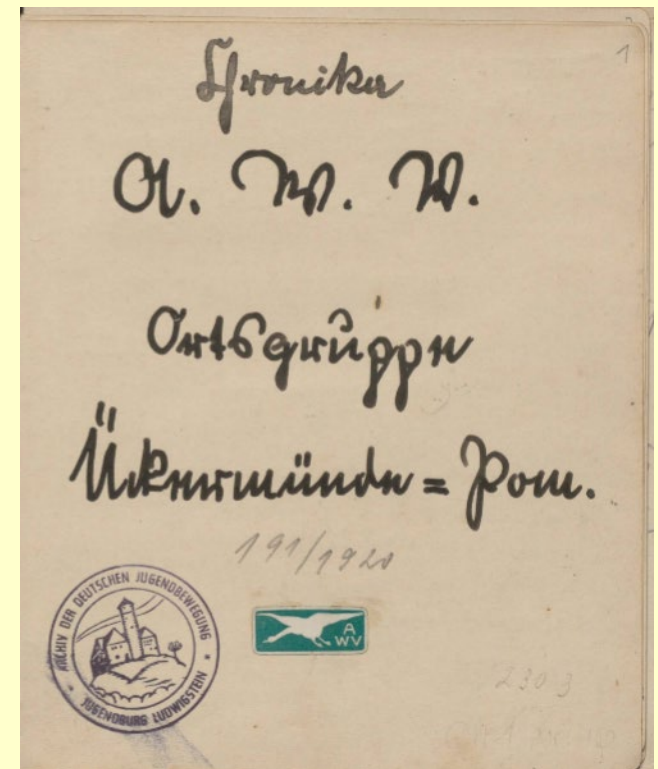 1
Chronika
A. W. V.
Ortsgruppe
Ükermünde = Pom.
191/1920
ARCHIV DER DEUTSCHEN JUGENDBEWEGUNG
* JUGENDBURG LUDWIGSTEIN *
A
WV
2303